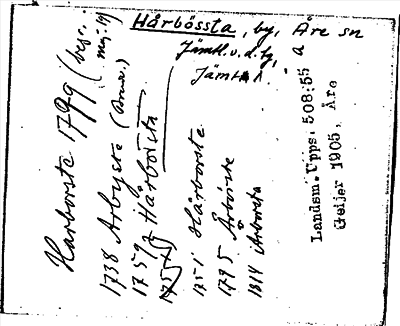 Hårbösta, by, Åre sn
Jämtl. v. d. tg,
Jämtl. l. a
Harborste 1799 (besc.
1738 Arbyste
1759 Hårbösta
1751 Hårborste
1795 Årbörste
1814 Arborsta
Landsm. Upps: 508:55
Geijer 1905, Åre